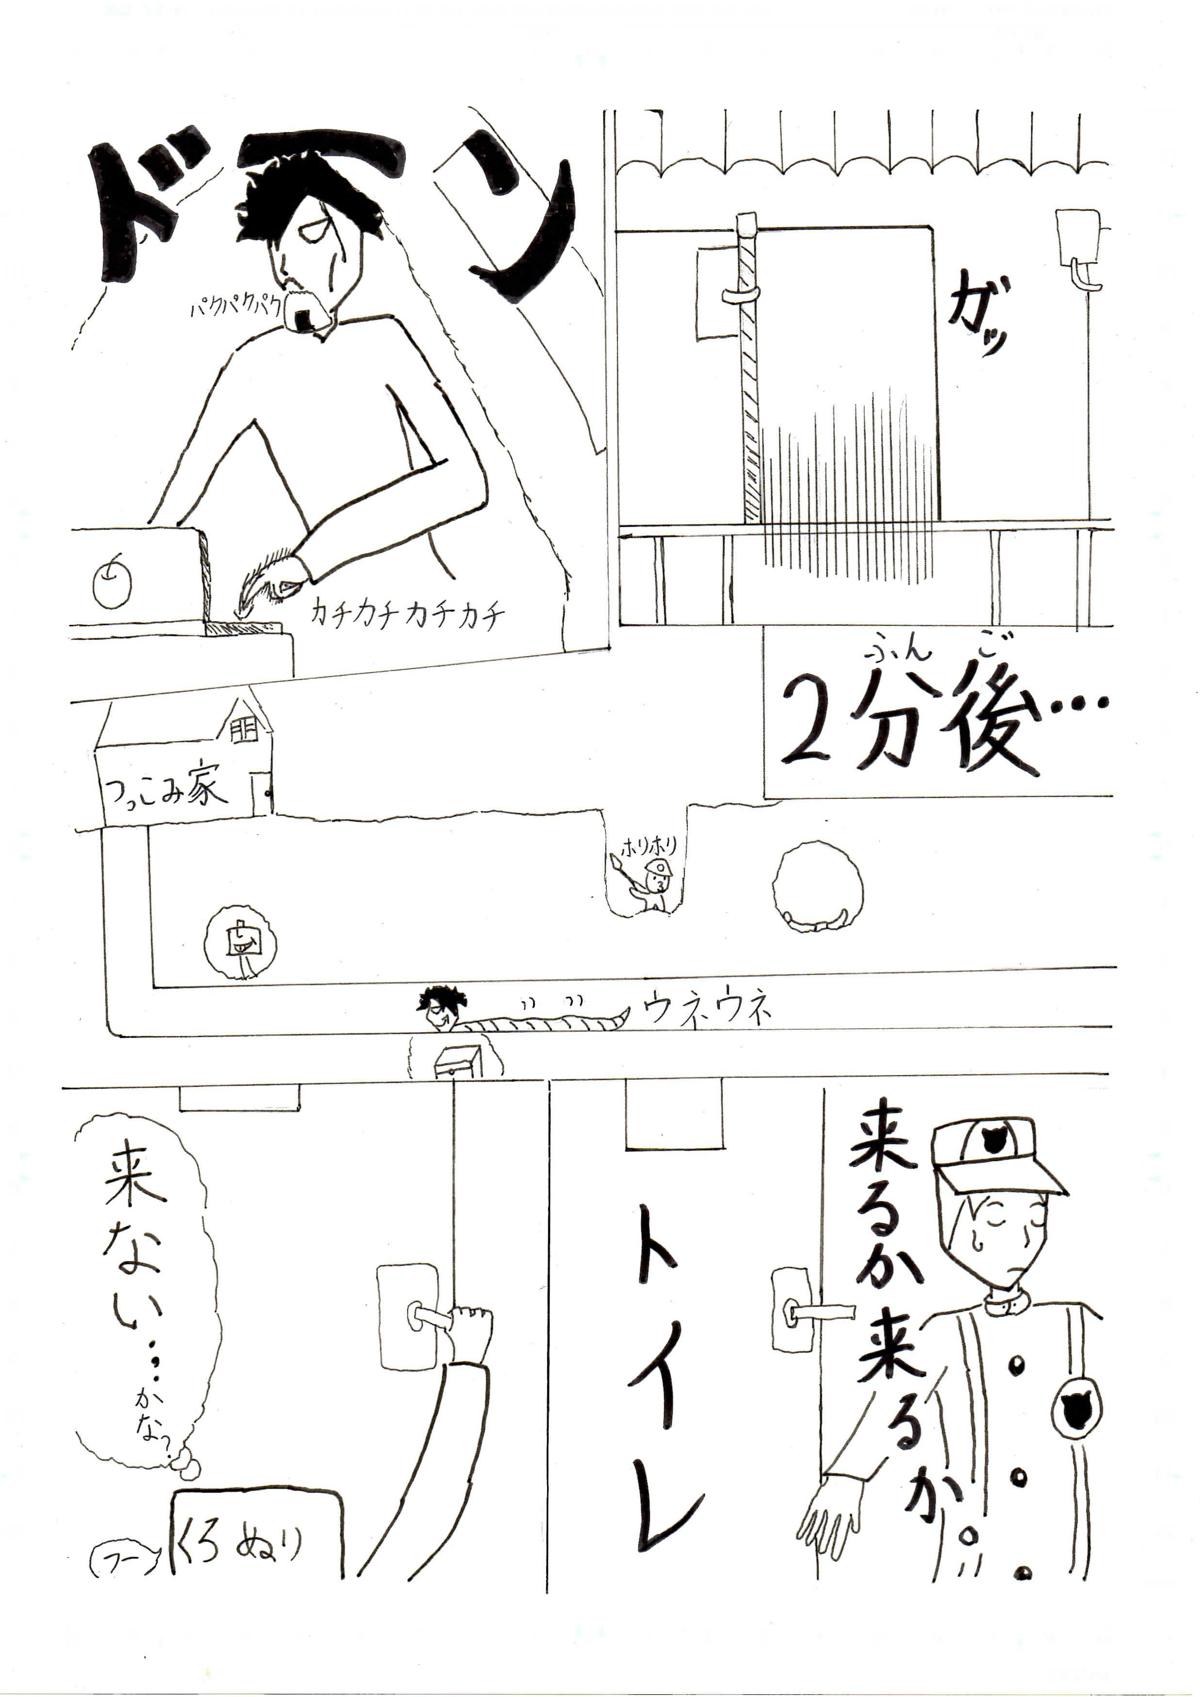 ガッ
ドーン
パクパクパク
カチカチカチカチ
2分後…
ふんご
つっこみ家
ホリホリ
ウネウネ
来るか来るか
トイレ
来ない…
かな?
くろぬり
フー